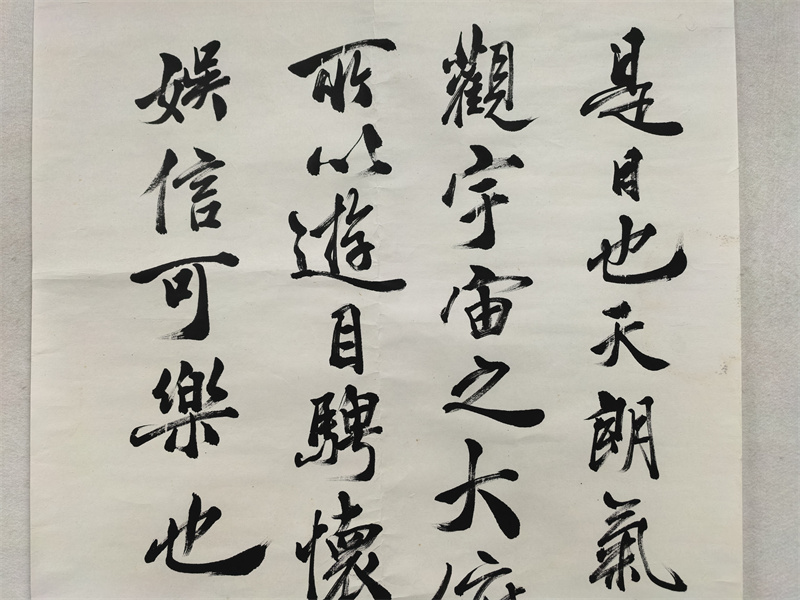 是日也天朗氣
觀宇宙之大俯
所以遊目騁懷
娛信可樂也